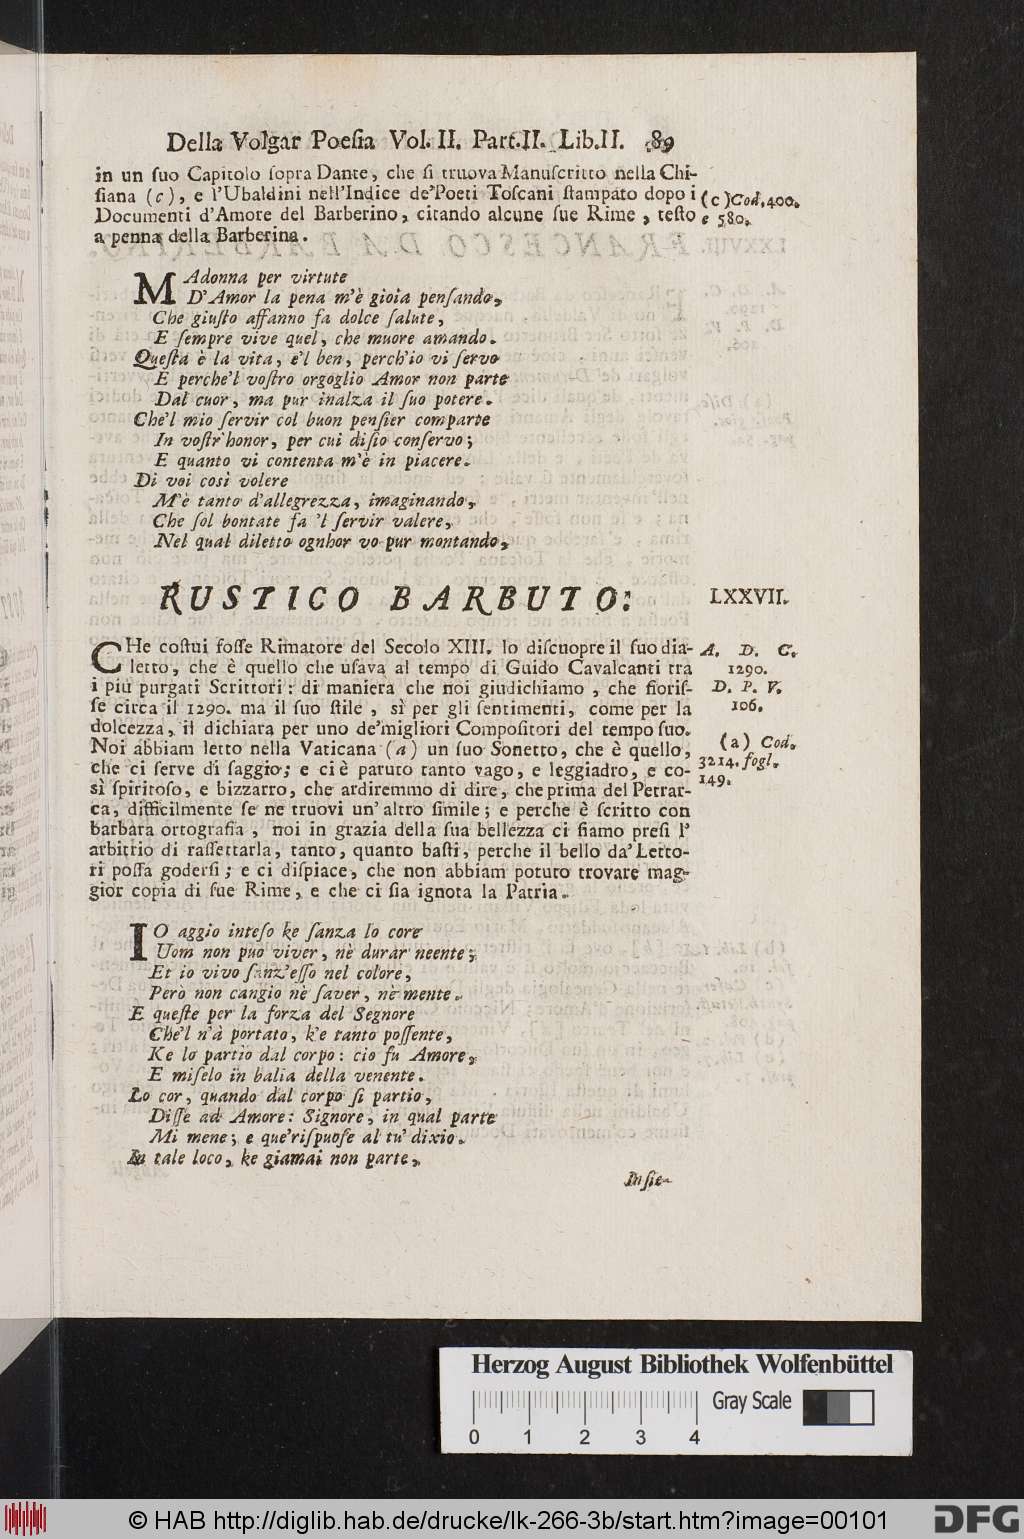 Della Volgar Poeſia Vol. II. Part.II. Lib.II. 89
in un ſuo Capitolo ſopra Dante, che ſi truova Manuſcritto nella Chi-
ſiana (c), e l'Ubaldini nell'Indice de'Poeti Toſcani ſtampato dopo i
Documenti d'Amore del Barberino, citando alcune ſue Rime, teſto
a penna della Barberina.
(c)Cod.400.
e 580.
MAdonna per virtute
D'Amor la pena m'è gioia penſando,
Che giuſto affanno fa dolce ſalute,
E ſempre vive quel, che muore amando.
Queſta è la vita, e'l ben, perch'io vi ſervo
E perche'l voſtro orgoglio Amor non parte
Dal cuor, ma pur inalza il ſuo potere.
Che'l mio ſervir col buon penſier comparte
In voſtr'honor, per cui diſio conſervo;
E quanto vi contenta m'è in piacere.
Di voi così volere
M'è tanto d'allegrezza, imaginando,
Che ſol bontate fa 'l ſervir valere,
Nel qual diletto ognhor vo pur montando,
RUSTICO BARBUTO.
LXXVII.
CHe coſtui foſſe Rimatore del Secolo XIII. lo diſcuopre il ſuo dia-
letto, che è quello che uſava al tempo di Guido Cavalcanti tra
i più purgati Scrittori: di maniera che noi giudichiamo, che fioriſ-
ſe circa il 1290. ma il ſuo ſtile, sì per gli ſentimenti, come per la
dolcezza, il dichiara per uno de'migliori Compoſitori del tempo ſuo.
Noi abbiam letto nella Vaticana (a) un ſuo Sonetto, che è quello,
che ci ſerve di ſaggio; e ci è paruto tanto vago, e leggiadro, e co-
sì ſpiritoſo, e bizzarro, che ardiremmo di dire, che prima del Petrar-
ca, difficilmente ſe ne truovi un'altro ſimile; e perchè è ſcritto con
barbara ortografia, noi in grazia della ſua bellezza ci ſiamo preſi l'
arbitrio di raſſettarla, tanto, quanto baſti, perche il bello da'Letto-
ri poſſa goderſi; e ci diſpiace, che non abbiam potuto trovare mag-
gior copia di ſue Rime, e che ci ſia ignota la Patria.
A. D. C.
1290.
D. P. V.
106.
(a) Cod.
3214. fogl.
149.
IO aggio inteſo ke ſanza lo core
Uom non può viver, nè durar neente;
Et io vivo ſanz'eſſo nel colore,
Però non cangio nè ſaver, nè mente.
E queſte per la forza del Segnore
Che'l n'à portato, k'e tanto poſſente,
Ke lo partìo dal corpo: cio fu Amore,
E miſelo in balia della venente.
Lo cor, quando dal corpo ſi partìo,
Diſſe ad Amore: Signore, in qual parte
Mi mene; e que'riſpuoſe al tu' dixio.
In tale loco, ke giamai non parte,
Inſie-
Herzog August Bibliothek Wolfenbüttel
Gray Scale
0 1 2 3 4
© HAB http://diglib.hab.de/drucke/lk-266-3b/start.htm?image=00101
DFG